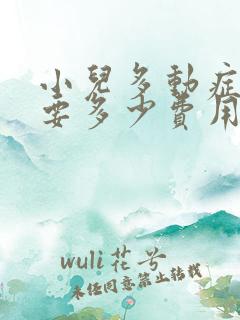 小兒多動症
要多少費用
wuli花兮
未经同意禁止转载